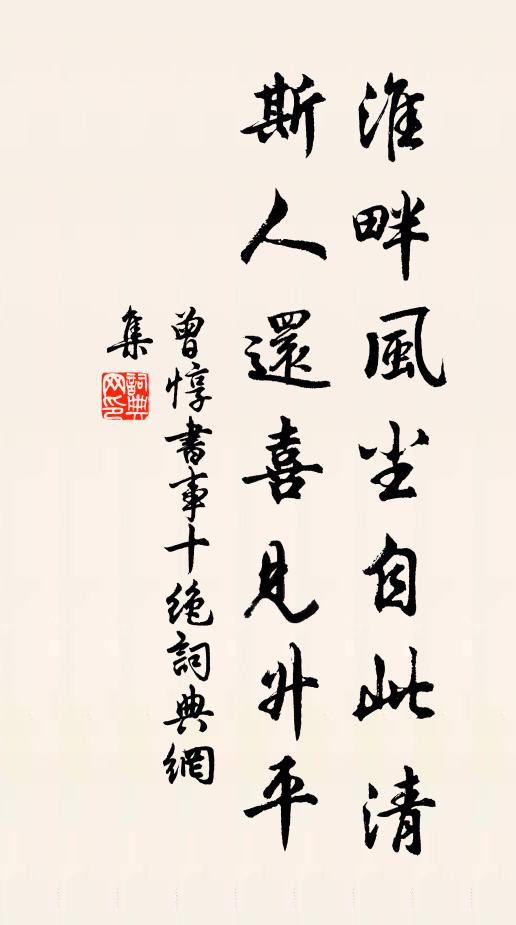 淮畔風尘自此清
斯人還喜見升平
曾惇書事十绝詞典網
集
詞典
网印